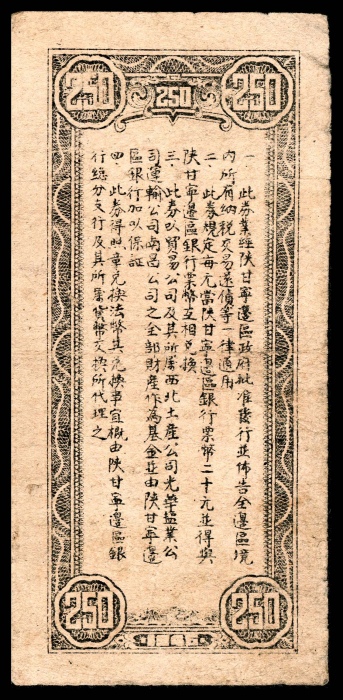 250
250
250
一、此券業經陝甘寧邊區政府批准發行並佈告全邊區境
內所有納稅交易還債等一律通用
二、此券規定每元當陝甘寧邊區銀行票幣二十元並得與
陝甘寧邊區銀行票幣互相兌換
三、此券以貿易公司及其所屬西北土產公司光華鹽業公
司運輸公司南昌公司之全部財產作為基金並由陝甘寧邊
區銀行加以保証
四、此券得照章兌換法幣其兌換事宜概由陝甘寧邊區銀
行總分支行及其所屬貨幣交換所代理之
250
250